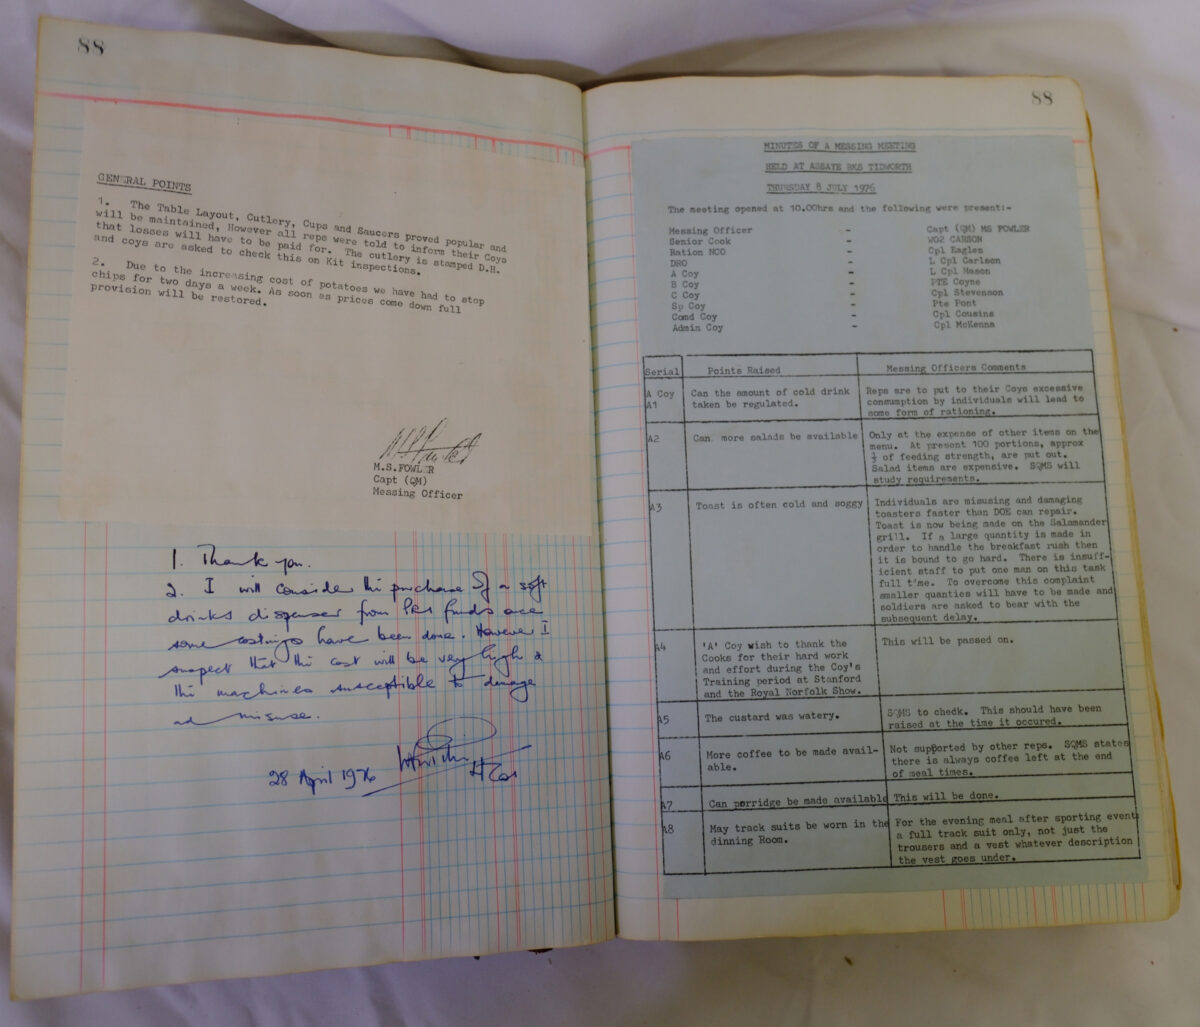 88
GENERAL POINTS
1. The Table Layout, Cutlery, Cups and Saucers proved popular and
will be maintained, However all reps were told to inform their Coys
that losses will have to be paid for. The cutlery is stamped D.H.
and coys are asked to check this on Kit inspections.
2. Due to the increasing cost of potatoes we have had to stop
chips for two days a week. As soon as prices come down full
provision will be restored.
M.S.FOWLER
Capt (QM)
Messing Officer
1. Thank you.
2. I will consider the purchase of a soft
drinks dispenser from PRI funds once
some costings have been done. However I
suspect that the cost will be very high &
the machines susceptible to damage
and misuse.
28 April 1976
88
MINUTES OF A MESSING MEETING
HELD AT ASSAYE BKS TIDWORTH
THURSDAY 8 JULY 1976
The meeting opened at 10.00hrs and the following were present:-
Messing Officer - Capt (QM) MS FOWLER
Senior Cook - WO2 CARSON
Ration NCO - Cpl Eagles
DRO - L Cpl Carlsen
A Coy - L Cpl Mason
B Coy - PTE Coyne
C Coy - Cpl Stevenson
Sp Coy - Pte Pont
Comd Coy - Cpl Cousins
Admin Coy - Cpl McKenna
Serial Points Raised Messing Officers Comments
A Coy
A1 Can the amount of cold drink
taken be regulated.
Reps are to put to their Coys excessive
consumption by individuals will lead to
some form of rationing.
A2 Can more salads be available
Only at the expense of other items on the
menu. At present 100 portions, approx
of feeding strength, are put out.
Salad items are expensive. SQMS will
study requirements.
A3 Toast is often cold and soggy
Individuals are misusing and damaging
toasters faster than DOE can repair.
Toast is now being made on the Salamander
grill. If a large quantity is made in
order to handle the breakfast rush then
it is bound to go hard. There is insuff-
icient staff to put one man on this task
full time. To overcome this complaint
smaller quanties will have to be made and
soldiers are asked to bear with the
subsequent delay.
A4 'A' Coy wish to thank the
Cooks for their hard work
and effort during the Coy's
Training period at Stanford
and the Royal Norfolk Show.
This will be passed on.
A5 The custard was watery.
SQMS to check. This should have been
raised at the time it occured.
A6 More coffee to be made avail-
able.
Not supported by other reps. SQMS states
there is always coffee left at the end
of meal times.
A7 Can porridge be made available
This will be done.
A8 May track suits be worn in the
dinning Room.
For the evening meal after sporting events
a full track suit only, not just the
trousers and a vest whatever description
the vest goes under.